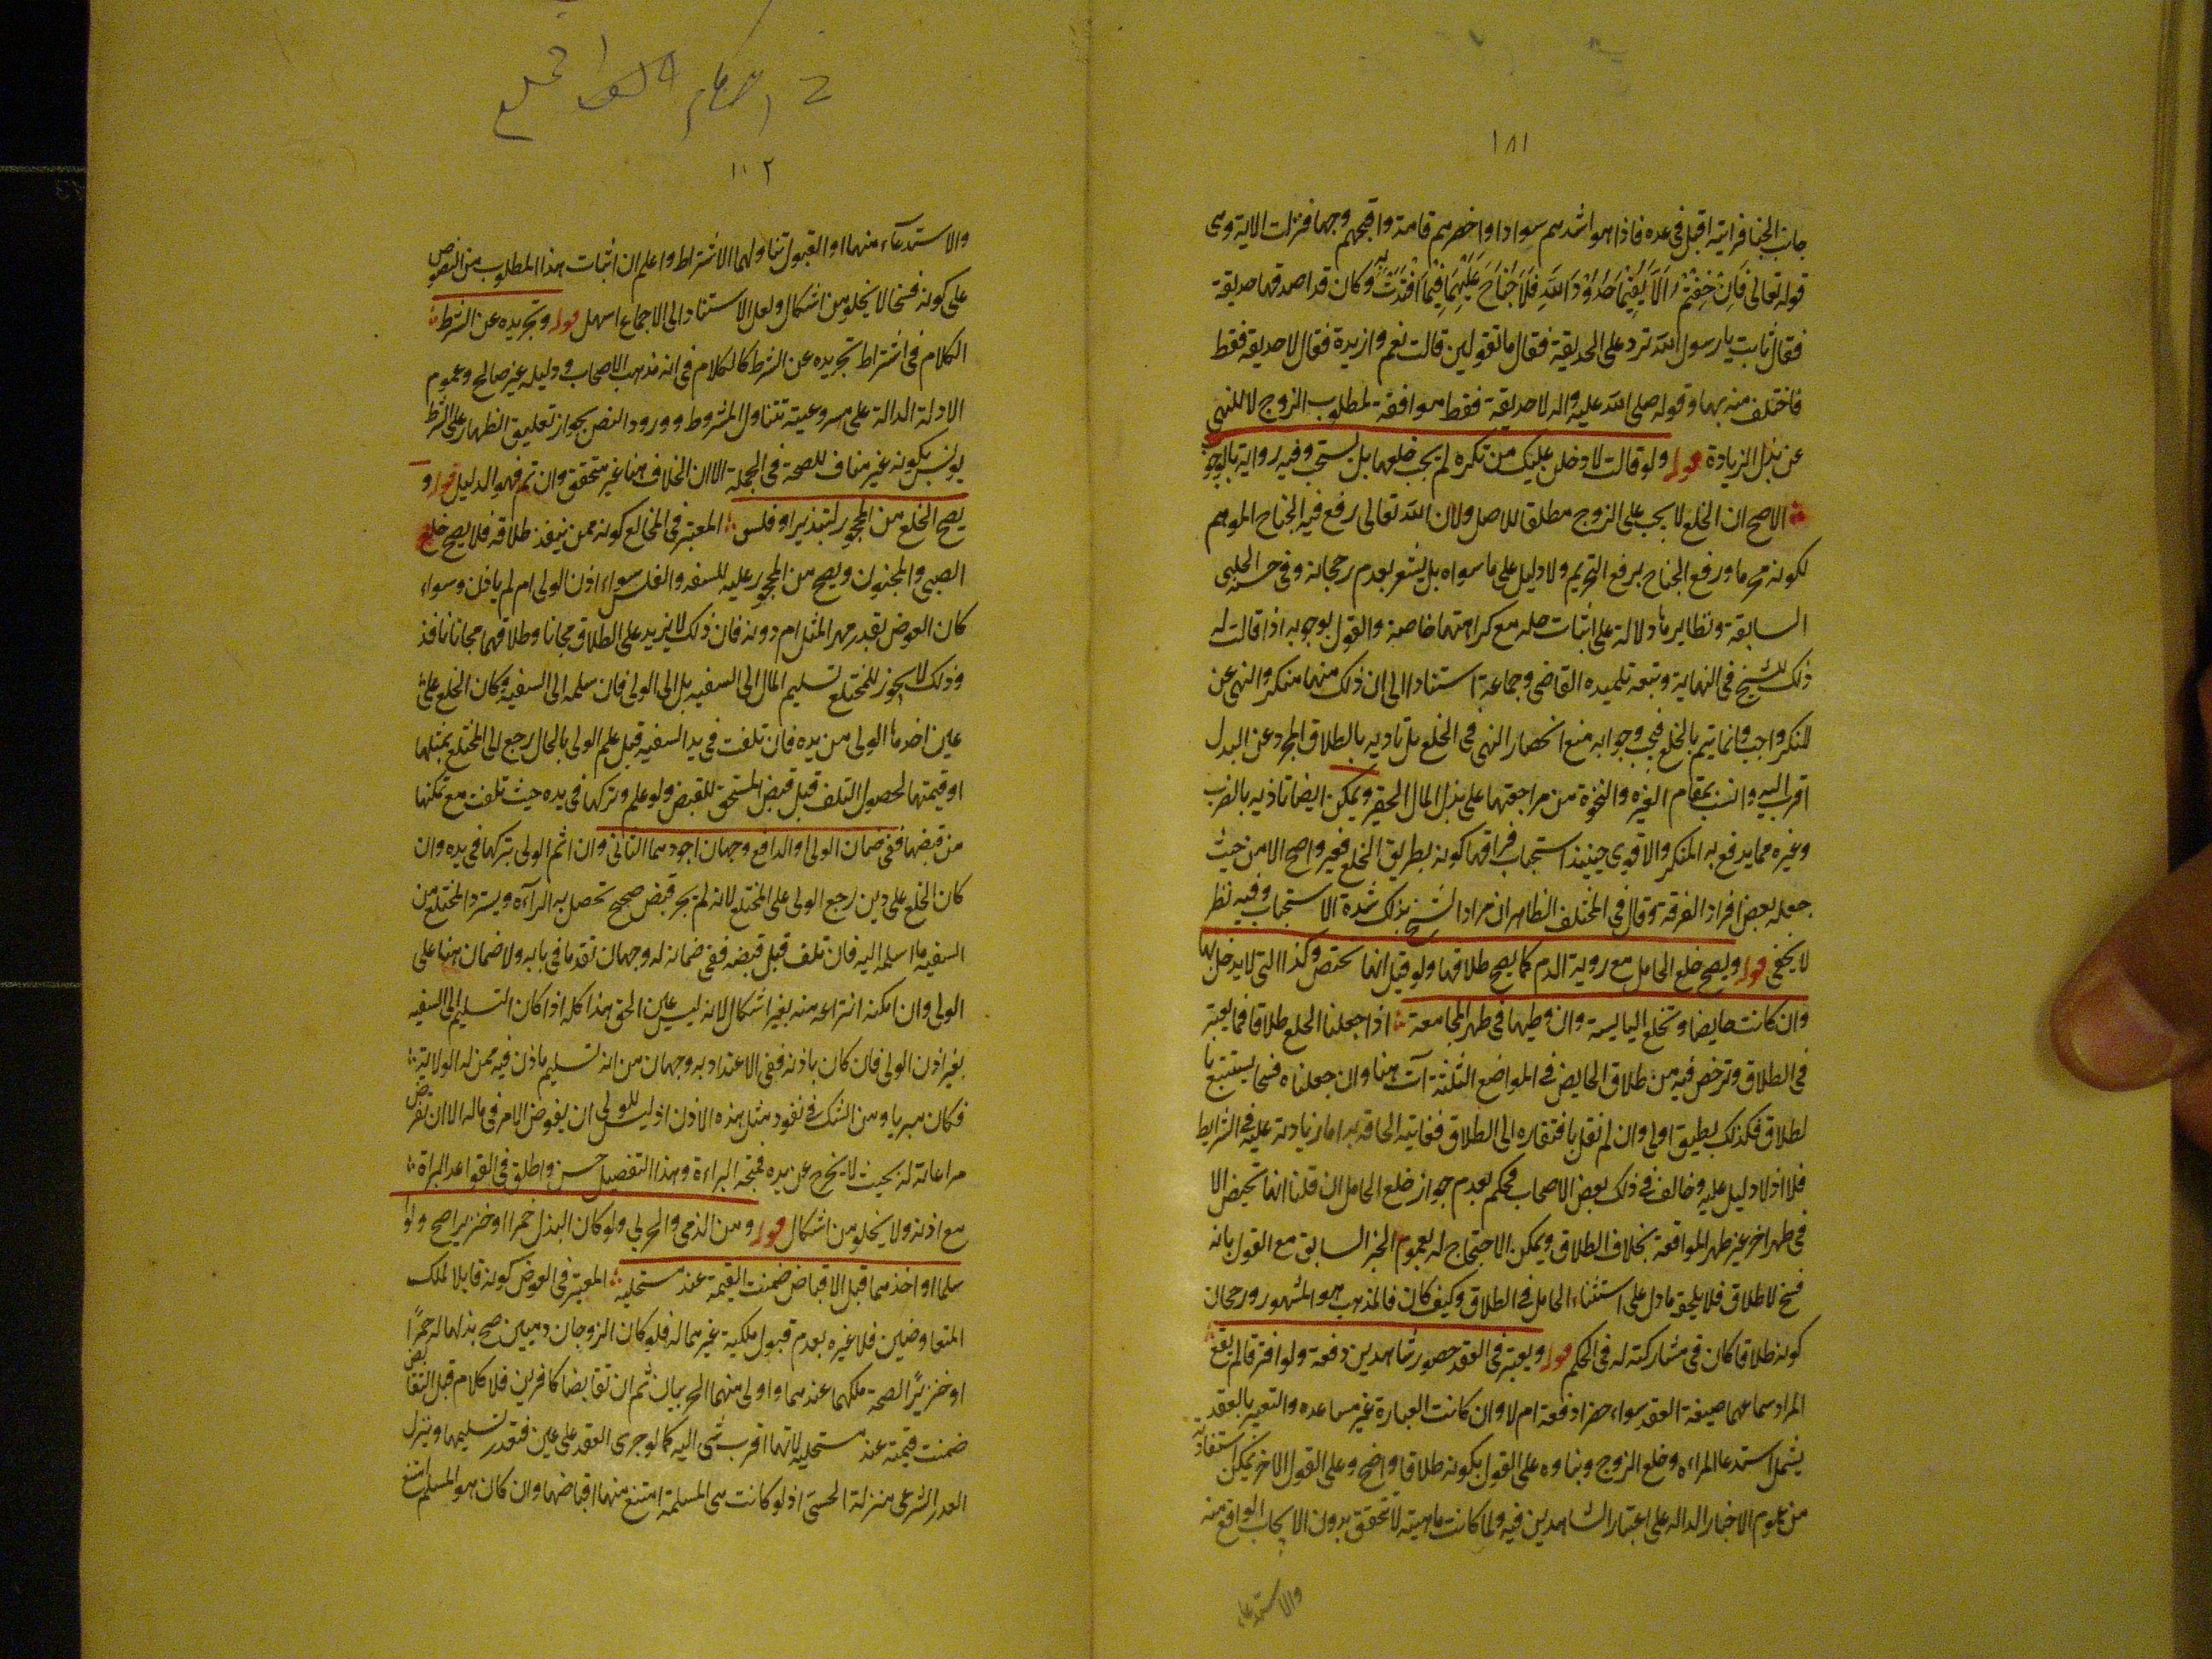 ١٨١
جانب الخبا فرايته اقبل فى عده فاذا هو اشدهم سوادا واخصرهم قامة واقبحهم وجها فنزلت الاية وهى
قوله تعالى فَاِنْ خِفْتُمْ اَلَّا يُقِيْمَا حُدُوْدَ اللهِ فَلَا جُنَاحَ عَلَيْهِمَا فِيْمَا افْتَدَتْ بِهٖ وكان قد اصدقها حديقة
فقال ثابت يا رسول الله ترد على الحديقة فقال ما تقولين قالت نعم وازيده فقال لا حديقه فقط
فاختلف منه بها وقوله صلى الله عليه واله لا حديقة فقط موافقة لمطلوب الزوج لا للنهى
عن بذل الزيادة قوله ولو قالت لادخلن عليك من تكره لم يجب خلعها بل يستحب وفيه رواية بالوجوب
الاصح ان الخلع لا يجب على الزوج مطلقا للاصل ولان الله تعالى رفع فيه الجناح الموهم
لكونه محرما ورفع الجناح يرفع التحريم ولا دليل على ما سواه بل يشعر بعدم رجحانه وفى حسنة الحلبى
السابقة ونظايرها دلالة على اثبات حله مع كراهتها خاصة والقول بوجوبه اذا قالت له
ذلك للشيخ فى النهاية وتبعه تلميذه القاضى وجماعة استنادا الى ان ذلك منها منكر والنهى عن
المنكر واجب وانما يتم بالخلع فيجب وجوابه منع انحصار النهى فى الخلع بل تاديه بالطلاق المجرد عن البدل
اقرب اليه وانسب بمقام الغيرة والنخوة من مراجعتها على بذل المال الحقير ويمكن ايضا تاذيه بالضرب
وغيره مما يدفع به المنكر والاقوى حينئذ استحباب فراقها كونه بطريق الخلع فغير واضح الا من حيث
جعله بعض افراد الفرقة وقال فى المختلف الظاهر ان مراد الشيخ بذلك شدة الاستحباب وفيه نظر
لا يخفى قوله ويصح خلع الحامل مع روية الدم كما يصح طلاقها ولو قيل انها تحتص وكذا التى لا يدخل بها
وان كانت حايضا وتخلع اليايسة وان وطيها فى طهر المجامعة اذا جعلنا الخلع طلاقا فما يعتبر
فى الطلاق وترخص فيه من طلاق الحايض فى المواضع الثلثة آت هنا وان جعلناه فسخا يستتبع با
لطلاق فكذلك بطريق اولى وان لم نقل بافتقاره الى الطلاق فغايته الحاقه به اما زيادته عليه فى الشرايط
فلا اذ لا دليل عليه وخالف فى ذلك بعض الاصحاب فحكم بعدم جواز خلع الحامل ان قلنا انها تحيض الا
فى طهر اخر غير طهر المواقعة بخلاف الطلاق ويمكن الاحتجاج له بعموم الخبر السابق مع القول بانه
فسخ لا طلاق فلا يلحق ما دل على استثناء الحامل فى الطلاق وكيف كان فالمذهب هو المشهور ورجحان
كونه طلاقا كان فى مشاركته له فى الحكم قوله ويعتبر فى العقد حضور شاهدين دفعة ولو افترقا لم يقع
المراد سماعهما صيغة العقد سواء حضرا دفعة ام لا وان كانت العبارة غير مساعده والتعبير بالعقد
يشمل استدعا المراءه وخلع الزوج وبناوه على القول بكونه طلاقا واضح وعلى القول الاخر يمكن استفادته
من عموم الاخبار الداله على اعتبار الشاهدين فيه ولما كانت ماهيته لا تتحقق بدون الايجاب الواقع منه
والاستدعاء
١٨٢
والاستدعاء منها او القبول تناولهما الاشتراط واعلم ان اثبات هذا المطلوب من النصوص
على كونه فسخا لا يخلو من اشكال ولعل الاستناد الى الاجماع اسهل قوله وتجريده عن الشرط
الكلام فى اشتراط تجريده عن الشرط كالكلام فى انه مذهب الاصحاب ودليله غير صالح وعموم
الادلة الدالة على مشروعيته تتناول المشروط وورود النص بجواز تعليق الظهار على الشرط
يؤنس بكونه غير مناف للصحة فى الجملة الا ان الخلاف هنا غير متحقق وان تم فهو الدليل قوله و
يصح الخلع من المحجور لتبذير او فلس المعتبر فى المخالع كونه ممن ينفذ طلاقه فلا يصح خلع
الصبى والمجنون ويصح من المحجور عليه للسفه والفلس سواء اذن الولى ام لم ياذن وسواء
كان العوض بقدر مهر المثل ام دونه فان ذلك لا يزيد على الطلاق مجانا وطلاقهما مجانا نافذ
وذلك لا يجوز للمختلع تسليم المال الى السفيه بل الى الولى فان سلمه الى السفيه وكان الخلع على
عين اخذها الولى من يده فان تلفت فى يد السفيه قبل علم الولى بالحال رجع الى المختلع بمثلها
او قيمتها لحصول التلف قبل قبض المستحق للقبض ولو علم وتركها فى يده حيث تلفت مع تمكنها
من قبضها ففى ضمان الولى او الدافع وجهان اجودهما الثانى وان اثم الولى بتركها فى يده وان
كان الخلع على دين رجع الولى على المختلع لانه لم يجر قبض صحيح تحصل به البرآءه ويسترد المختلع من
السفيه ما سلمه اليه فان تلف قبل قبضه ففى ضمانه له وجهان تقدما فى بابه ولا ضمان هنا على
الولى وان امكنه انتزاعه منه بغير اشكال لانه ليس عين الحق هذا كله اذا كان التسليم الى السفيه
بغير اذن الولى فان كان باذنه ففى الاعتداد به وجهان من انه تسليم ماذن فيه ممن له الولاية
فكان مبريا ومن الشك فى نفوذ مثل هذه الاذن اذ ليس للولى ان يفوض الامر فى ماله الا ان نفرض
مراعاته له بحيث لا يخرج عن يده فيتجه البراءة وهذا التفصيل حسن واطلق فى القواعد البراة
مع اذنه ولا يخلو من اشكال قوله ومن الذمى والحربى ولو كان البذل خمرا او خنزيرا صح ولو
سلما او احدهما قبل الاقباض ضمنت القيمة عند مستحليه المعتبر فى العوض كونه قابلا لملك
المتعاوضين فلا غيره بعدم قبول ملكية غيرهما له فلو كان الزوجان ذميين صح بذلها له خمرًا
او خنزيرًا لصحة ملكهما عندهما واولى منهما الحربيان ثم ان تقابضا كافرين فلا كلام قبل التقابض
ضمنت قيمته عند مستحليه لانها اقرب شى اليه كما لو جرى العقد على عين فتعذر تسليمها وينزل
العدر الشرعى منزلة الحسى اذ لو كانت هى المسلمة امتنع منها اقباضها وان كان هو المسلم امتنع